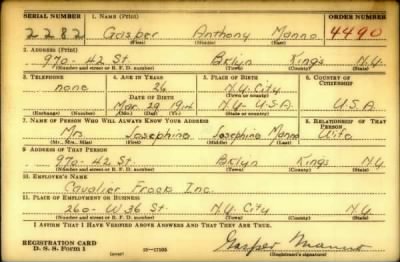 SERIAL NUMBER 1. NAME (Print) ORDER NUMBER
2282 Gasper Anthony Manno 4490
(First) (Middle) (Last)
2. ADDRESS (Print)
970-42 St. Bklyn Kings N.Y.
(Number and street or R. F. D. number) (Town) (County) (State)
3. TELEPHONE 4. AGE IN YEARS 5. PLACE OF BIRTH 6. COUNTRY OF CITIZENSHIP
none 26 N.Y. City
DATE OF BIRTH (Town or county)
Mar. 29 1914 N.Y. U.S.A. U.S.A.
(Exchange) (Number) (Mo.) (Day) (Yr.) (State or country)
7. NAME OF PERSON WHO WILL ALWAYS KNOW YOUR ADDRESS 8. RELATIONSHIP OF THAT PERSON
Mrs. Josephine Josephine Manno Wife
(Mr., Mrs., Miss) (First) (Middle) (Last)
9. ADDRESS OF THAT PERSON
970-42 St. Bklyn Kings N.Y.
(Number and street or R. F. D. number) (Town) (County) (State)
10. EMPLOYER'S NAME
Cavalier Frocks Inc.
11. PLACE OF EMPLOYMENT OR BUSINESS
260- W 36 St. N.Y. City N.Y.
(Number and street or R. F. D. number) (Town) (County) (State)
I AFFIRM THAT I HAVE VERIFIED ABOVE ANSWERS AND THAT THEY ARE TRUE.
REGISTRATION CARD
D. S. S. Form 1 (over) Gasper Manno
(Registrant's signature)